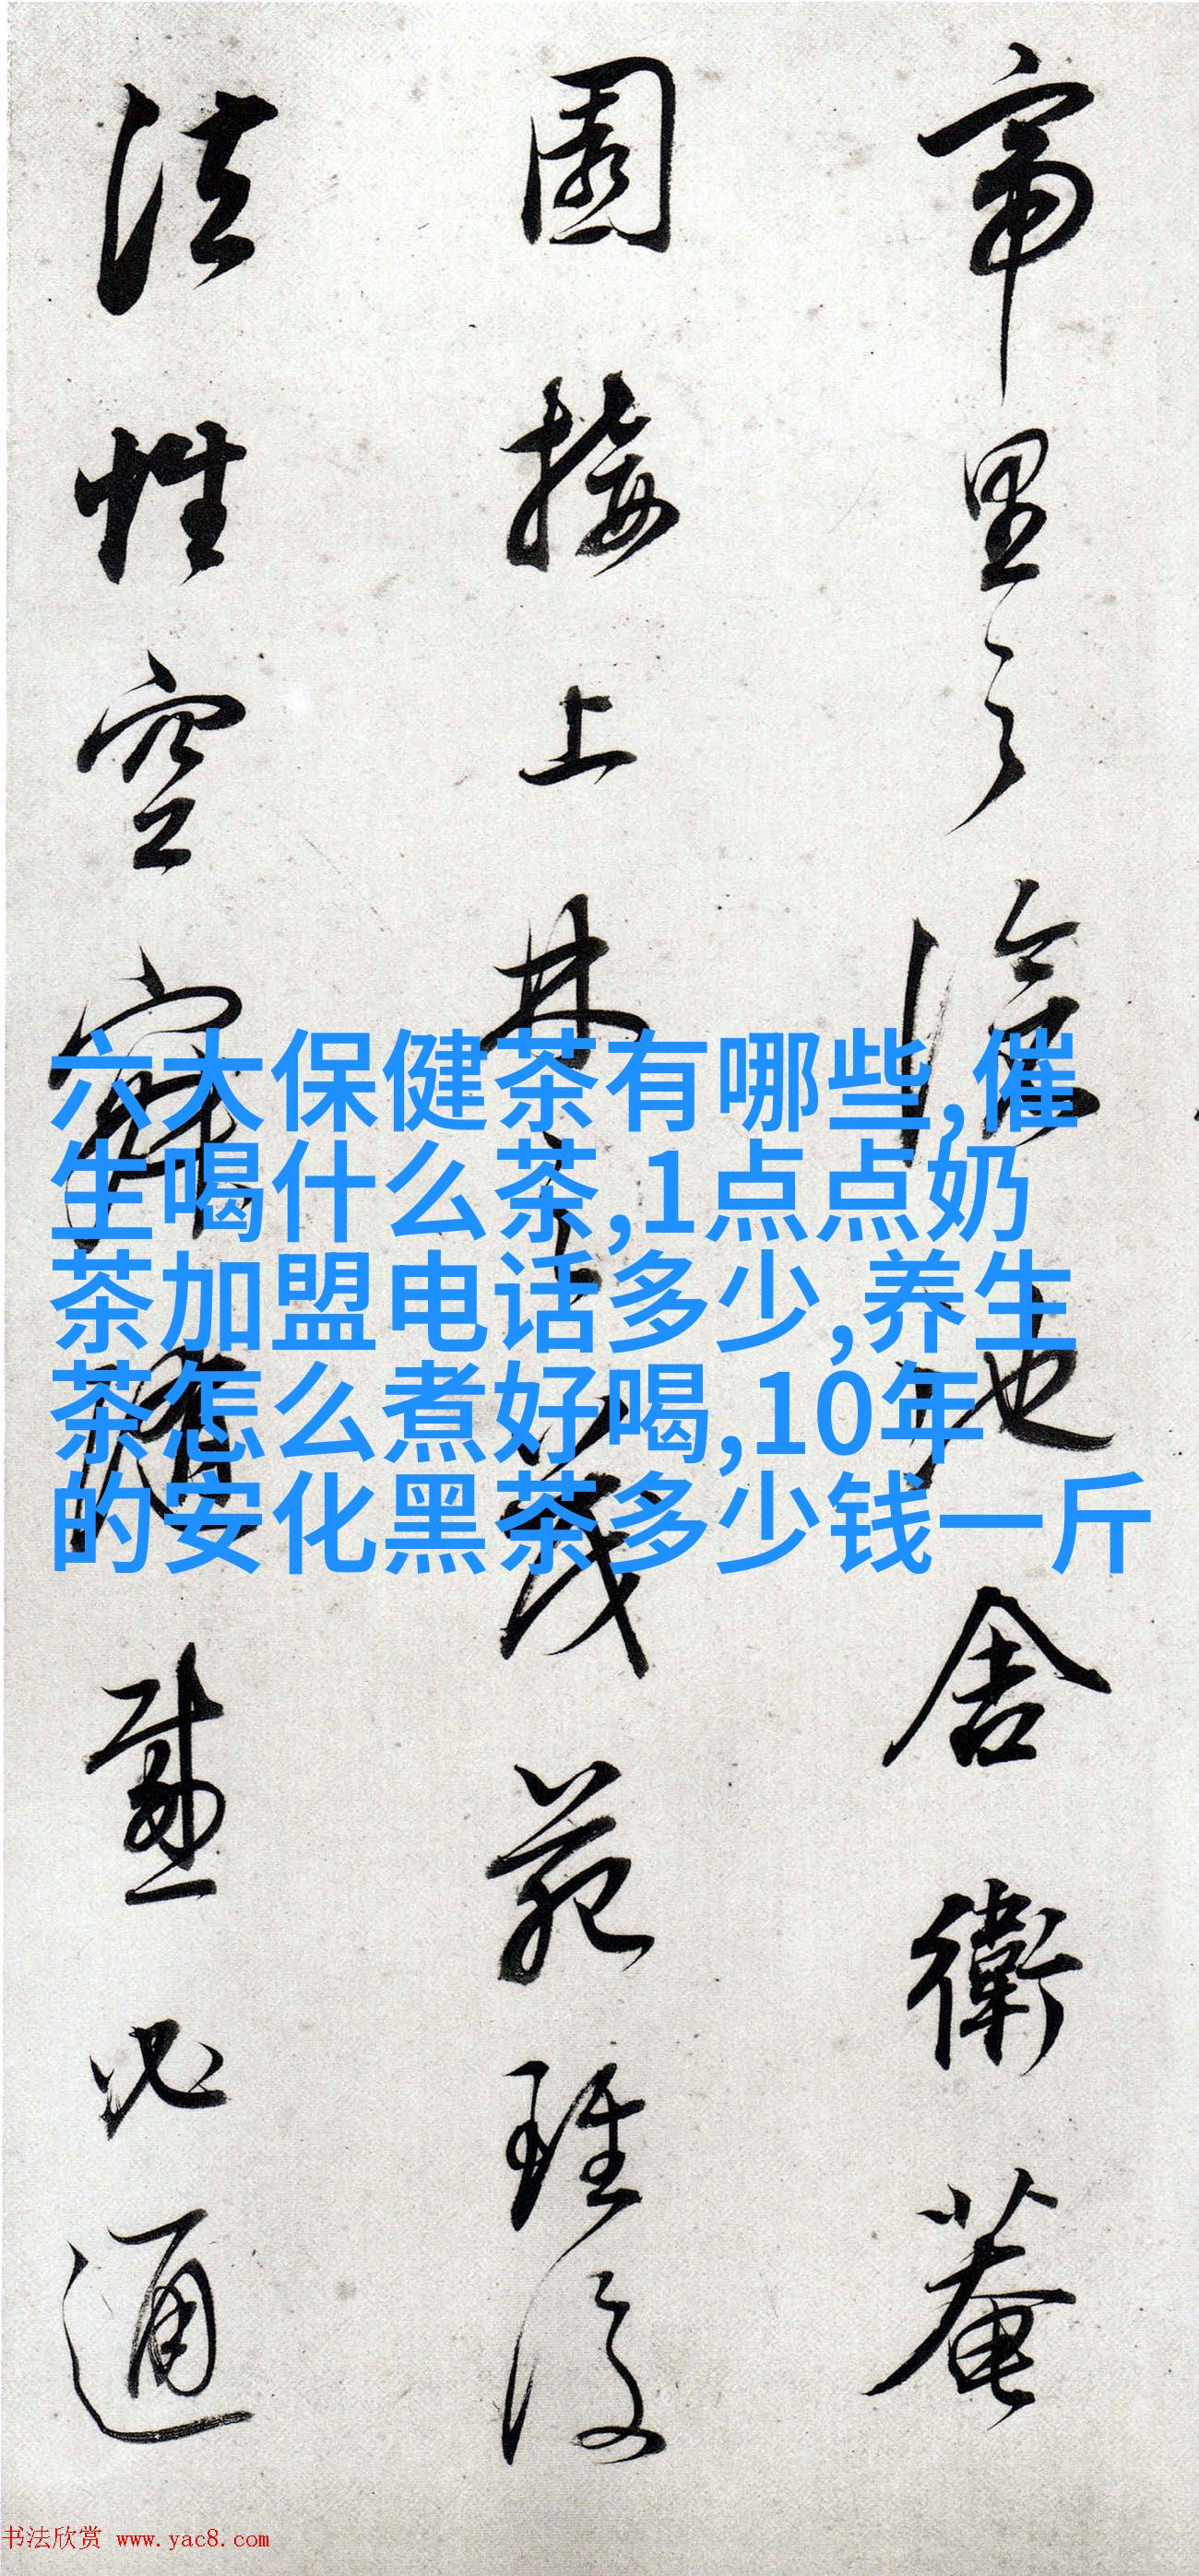 帝里之陰也舍衛菴
園接上林之茂苑
法性空寂隨感必通
六大保健茶有哪些,催
生喝什么茶,1点点奶
茶加盟电话多少,养生
茶怎么煮好喝,10年
的安化黑茶多少钱一斤
书法欣赏 www.yac8.com